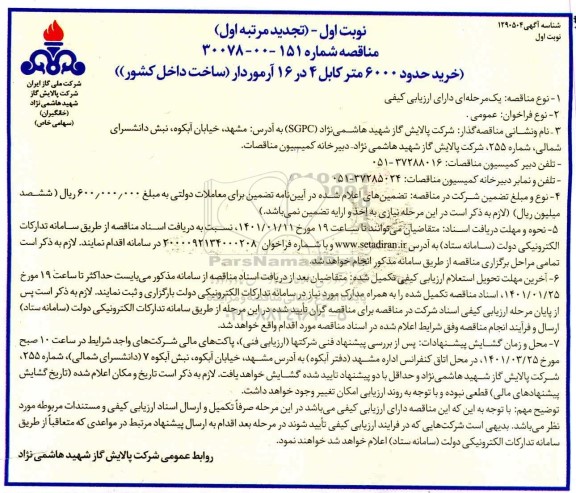 شناسه آگهی ۱۲۹۰۵۰۴
نوبت اول
نوبت اول - (تجدید مرتبه اول)
مناقصه شماره ۱۵۱-۰۰-۳۰۰۷۸
(خرید حدود ۶۰۰۰ متر کابل ۴ در ۱۶ آرموردار (ساخت داخل کشور))
شرکت ملی گاز ایران
شرکت پالایش گاز
شهید هاشمی نژاد
(خانگیران)
(سهامی خاص)
۱- نوع مناقصه: یک مرحله‌ای دارای ارزیابی کیفی
۲- نوع فراخوان: عمومی.
۳- نام ونشانی مناقصه‌گذار: شرکت پالایش گاز شهید هاشمی‌نژاد (SGPC) به آدرس: مشهد، خیابان آبکوه، نبش دانشسرای
شمالی، شماره ۲۵۵، شرکت پالایش گاز شهید هاشمی نژاد- دبیرخانه کمیسیون مناقصات.
- تلفن دبیر کمیسیون مناقصات: ۳۷۲۸۸۰۱۶-۰۵۱
- تلفن و نمابر دبیرخانه کمیسیون مناقصات: ۳۷۲۸۵۰۲۴-۰۵۱
۴- نوع و مبلغ تضمین شرکت در مناقصه: تضمین‌های اعلام شده در آیین‌نامه تضمین برای معاملات دولتی به مبلغ ۶۰۰,۰۰۰,۰۰۰ ریال ( ششصد
میلیون ریال) (لازم به ذکر است در این مرحله نیازی به اخذ و ارایه تضمین نمی‌باشد.)
۵- نحوه و مهلت دریافت اسناد: متقاضیان می‌توانند تا ساعت ۱۹ مورخ ۱۴۰۱/۰۱/۱۱، نسبت به دریافت اسناد مناقصه از طریق سامانه تدارکات
الکترونیکی دولت (سامانه ستاد) به آدرس www.setadiran.ir و با شماره فراخوان ۲۰۰۰۰۹۲۱۳۴۰۰۰۲۰۸ در سامانه اقدام نمایند. لازم به ذکر است
تمامی مراحل برگزاری مناقصه از طریق سامانه مذکور انجام خواهد شد.
۶- آخرین مهلت تحویل استعلام ارزیابی کیفی تکمیل شده: متقاضیان بعد از دریافت اسناد مناقصه از سامانه مذکور می‌بایست حداکثر تا ساعت ۱۹ مورخ
۱۴۰۱/۰۱/۲۵، اسناد مناقصه تکمیل شده را به همراه مدارک مورد نیاز در سامانه تدارکات الکترونیکی دولت بارگزاری و ثبت نمایند. لازم به ذکر است پس
از پایان مرحله ارزیابی کیفی اسناد شرکت در مناقصه برای مناقصه گران تأیید شده در این مرحله از طریق سامانه تدارکات الکترونیکی دولت (سامانه ستاد)
ارسال و فرآیند انجام مناقصه وفق شرایط اعلام شده در اسناد مناقصه مورد اقدام واقع خواهد شد.
۷- محل و زمان گشایش پیشنهادات: پس از بررسی پیشنهاد فنی شرکتها (ارزیابی فنی)، پاکت‌های مالی شرکت‌های واجد شرایط در ساعت ۱۰ صبح
مورخ ۱۴۰۱/۰۳/۲۵، در محل اتاق کنفرانس اداره مشهد (دفتر آبکوه) به آدرس مشهد، خیابان آبکوه، نبش آبکوه ۷ (دانشسرای شمالی)، شماره ۲۵۵،
شرکت پالایش گاز شهید هاشمی‌نژاد و حداقل با دو پیشنهاد تایید شده گشایش خواهد یافت. لازم به ذکر است تاریخ و مکان اعلام شده (تاریخ گشایش
پیشنهادهای مالی) قطعی نبوده و با توجه به روند ارزیابی امکان تغییر وجود خواهد داشت.
توضیح مهم: با توجه به این که این مناقصه دارای ارزیابی کیفی می‌باشد در این مرحله صرفاً تکمیل و ارسال اسناد ارزیابی کیفی و مستندات مربوطه مورد
نظر می‌باشد. بدیهی است شرکت‌هایی که در فرایند ارزیابی کیفی تأیید شوند در مرحله بعد اقدام به ارسال پیشنهاد مرتبط در مواعدی که متعاقباً از طریق
سامانه تدارکات الکترونیکی دولت (سامانه ستاد) اعلام خواهد شد خواهند نمود.
روابط عمومی شرکت پالایش گاز شهید هاشمی نژاد